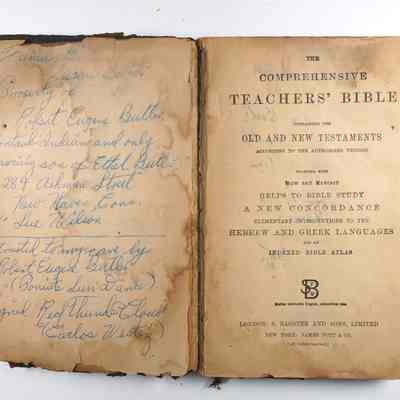 Property of
Robert Eugene Butler
Indian and only
son of Ethel Butler
284 Ashmun Street
New Haven Conn.
Sue Wilson
to me by
Robert Eugene Butler
Red Thunder Cloud
(Carlos Westez)
THE
COMPREHENSIVE
TEACHERS' BIBLE
CONTAINING THE
OLD AND NEW TESTAMENTS
ACCORDING TO THE AUTHORISED VERSION
TOGETHER WITH
NEW AND REVISED
HELPS TO BIBLE STUDY
A NEW CONCORDANCE
ELEMENTARY INTRODUCTIONS TO THE
HEBREW AND GREEK LANGUAGES
AND AN
INDEXED BIBLE ATLAS
LONDON: S. BAGSTER AND SONS, LIMITED
NEW YORK: JAMES POTT & CO.